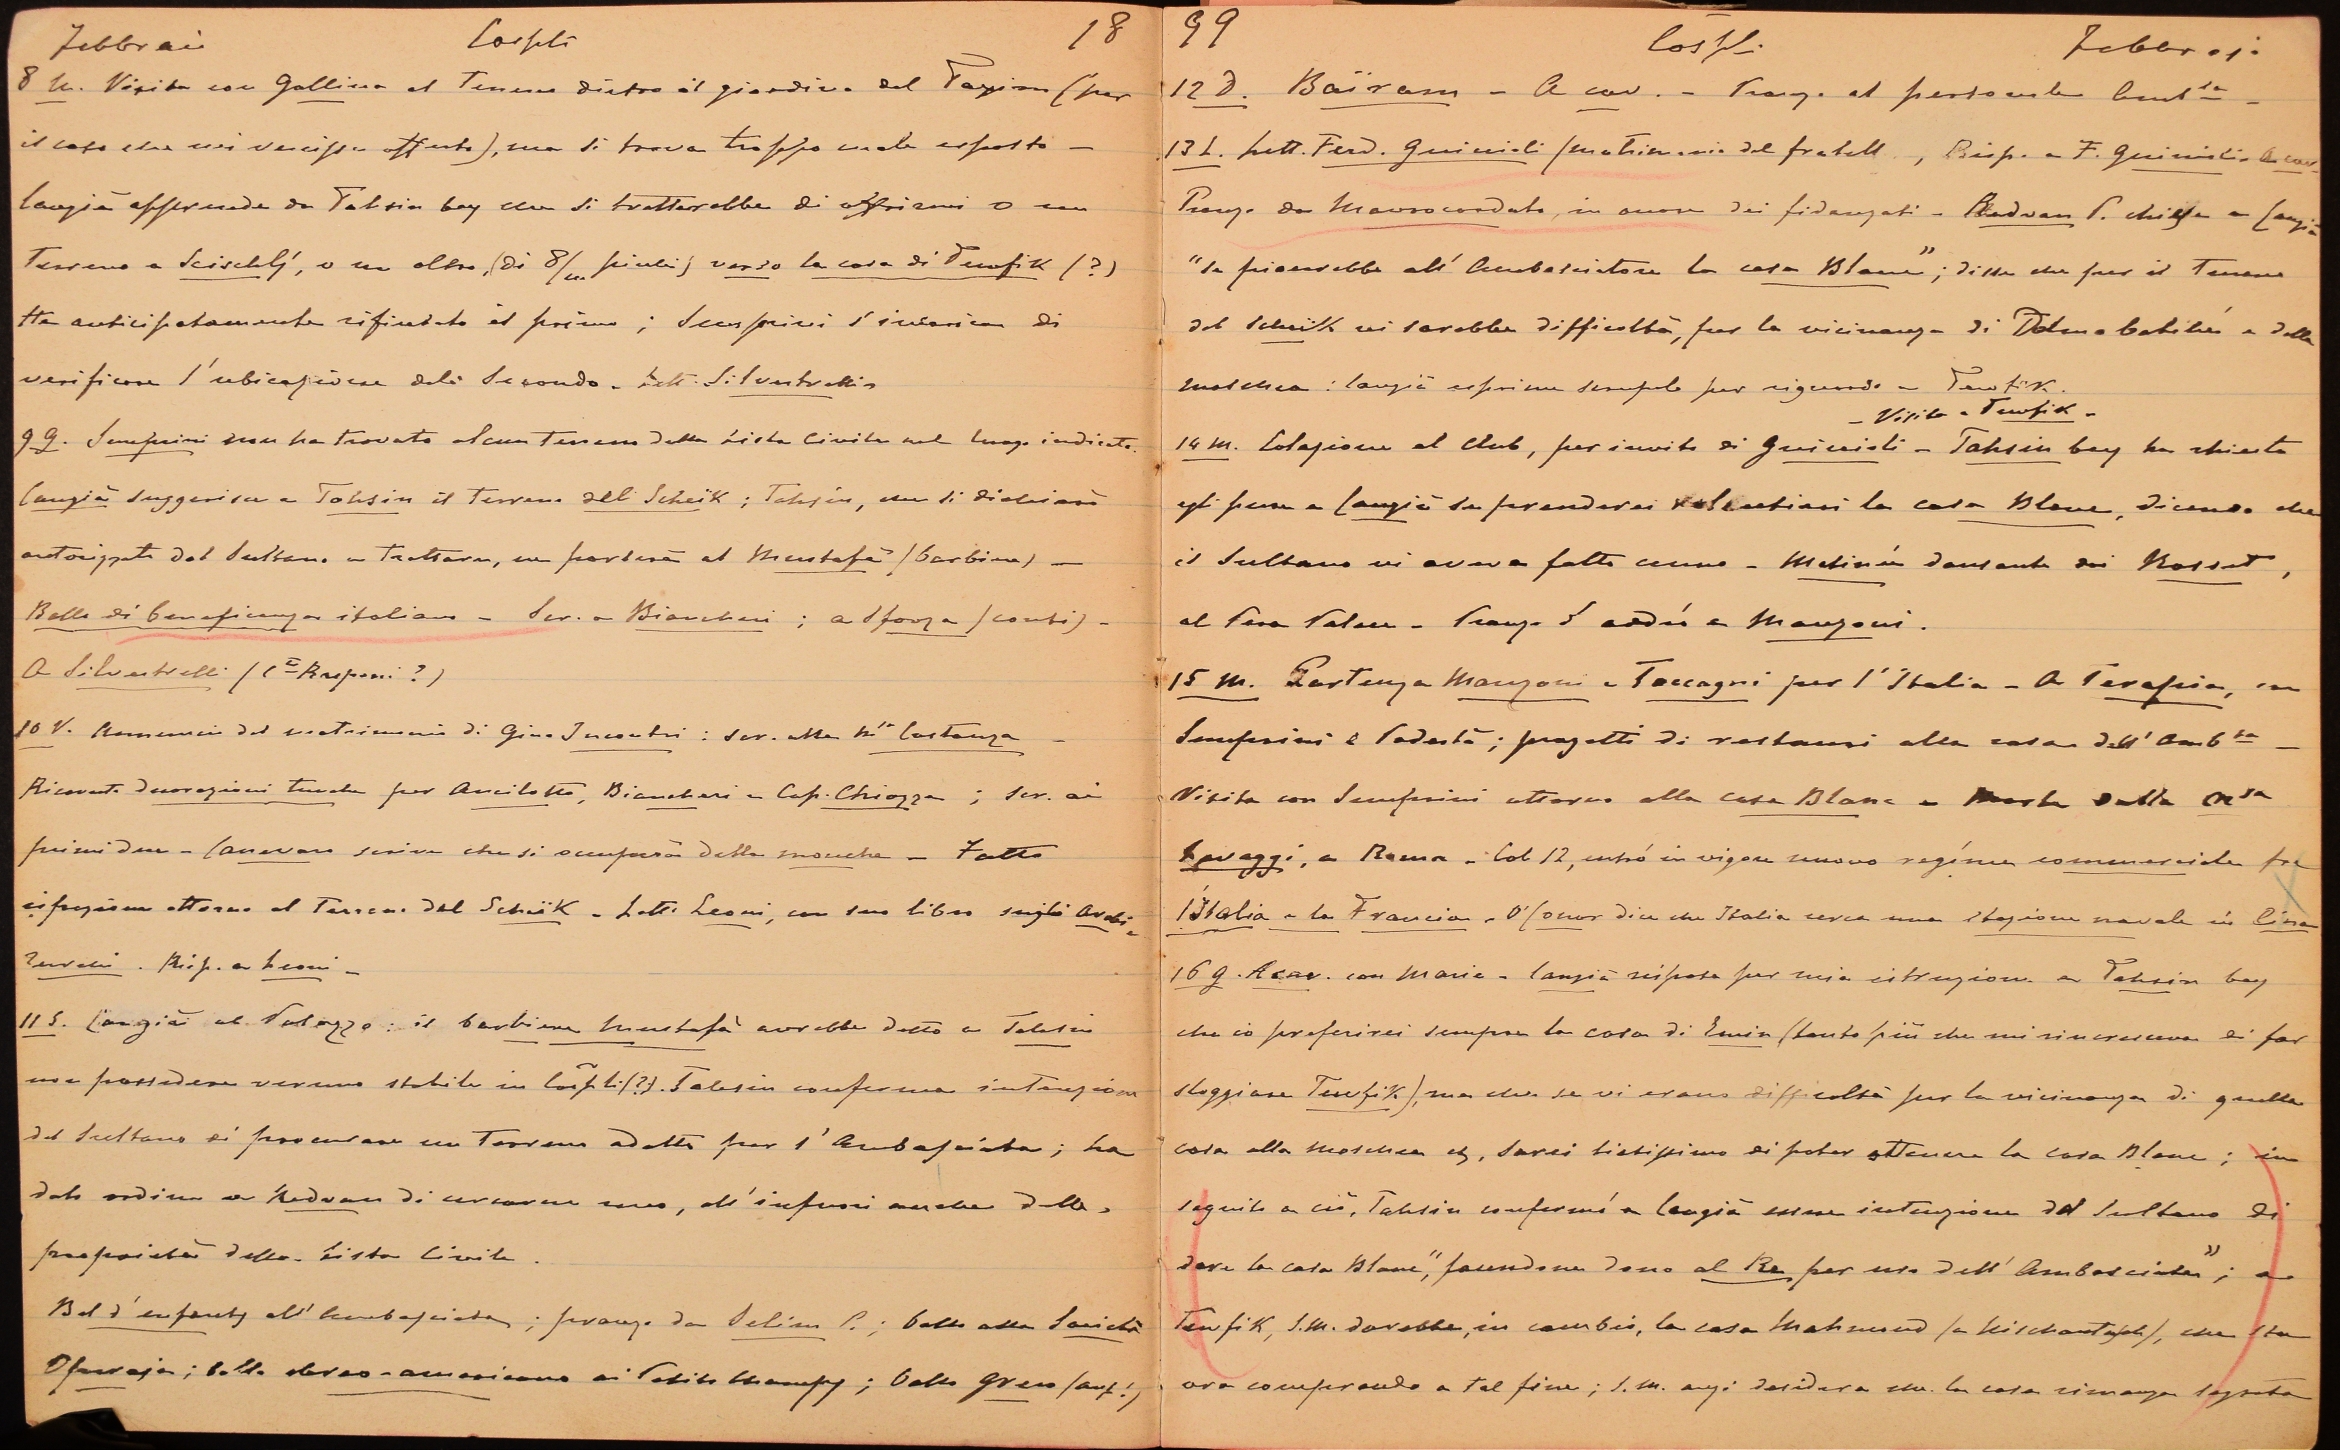 Febbraio Cospli 18
8 M. Visita con Gallina al Terreno dietro il giardino del Taxim (per
il caso che mi venisse offerto), ma si trova troppo male esposto —
Cangià apprende da Tahsin bey che si tratterebbe di offrirmi o un
Terreno a Scischlì, o un altro, (di 8/m piedi) verso la casa di Tewfik (?)
Ha anticipatamente rifiutato il primo; Semprini s'incarica di
verificare l'ubicazione del secondo. Lett. Silvestrelli
9 G. Semprini non ha trovato alcun Terreno della Lista Civile nel luogo indicato.
Cangià suggerisce a Tahsin il Terreno del Scheik; Tahsin, che si dichiarò
autorizzato dal Sultano a trattare, ne parlerà al Mustafà (barbiere) —
Ballo di beneficenza italiano — Scr. a Biancheri; a Sforza (conti) —
A Silvestrelli (Cte Rasponi?)
10 V. Annuncio del matrimonio di Gino Incontri: scr. alla Mise Costanza —
Ricevute decorazioni turche per Ancilotto, Biancheri e Cap. Chiozza; scr. ai
primi due — Canevaro scrive che si occuperà della mouche — Fatto
ispezione attorno al Terreno del Scheik — Lett. Leoni, con suo libro sugli Arabi
Risp. a Leoni —
11 S. Cangià al Palazzo: il barbiere Mustafà avrebbe detto a Tahsin
non possedere veruno stabile in Cospli (?). Tahsin conferma intenzione
del Sultano di procurare un Terreno adatto per l'Ambasciata; ha
dato ordine a Redvan di cercarne uno, all'infuori anche delle
proprietà della Lista Civile.
Bal d'enfants all'Ambasciata; pranzo da Selim P.; ballo alla Società
Operaja; ballo ebreo-americano ai Petits Champs; ballo Greco (anf!)
99 Cospli Febbrajo
12 D. Baïram — A cav. — Pranzo al personale Ambta —
13 L. Lett. Ferd. Guiccioli (matrimonio del fratell , Risp. a F. Guiccioli. A cav.
Pranzo da Mavrocordato, in onore dei fidanzati — Redvan P. chiese a Cangià
"se piacerebbe all'Ambasciatore la casa Blanc"; disse che per il Terreno
del Scheik vi sarebbe difficoltà, per la vicinanza di Dolmabatché e della
moschea: Cangià esprime scrupolo per riguardo a Tewfik.
— Visita a Tewfik —
14 M. Colazione al Club, per invito di Guiccioli — Tahsin bey ha chiesto
egli pure a Cangià se prenderei volentieri la casa Blanc, dicendo che
il Sultano vi aveva fatto cenno — Matinée dansante dei Rosset,
al Pera Palace — Pranzo d'addio a Manzoni.
15 M. Partenza Manzoni e Toccagni per l'Italia — A Terapia, con
Semprini e Podestà; progetti di restauri alla casa dell'Ambta —
Visita con Semprini attorno alla casa Blanc — Morte della Msa
Lavaggi, a Roma — Col 12, entrò in vigore nuovo regime commerciale fra
l'Italia e la Francia — O'Conor dice che Italia cerca una stazione navale in Cina
16 G. A cav. con Maria — Cangià rispose per mia istruzione a Tahsin bey
che io preferirei sempre la casa di Emin (tanto più che mi rincresceva di far
sloggiare Tewfik), ma che se vi erano difficoltà per la vicinanza di quella
casa alla moschea ec, sarei lietissimo di poter ottenere la casa Blanc; in
seguito a ciò, Tahsin confermò a Cangià essere intenzione del Sultano di
dare la casa Blanc, "facendone dono al Re per uso dell'Ambasciata"; a
Tewfik, S.M. darebbe, in cambio, la casa Mahmud (a Nischantasch), che sta
ora comprando a tal fine; S.M. anzi desidera che la casa rimanga segreta